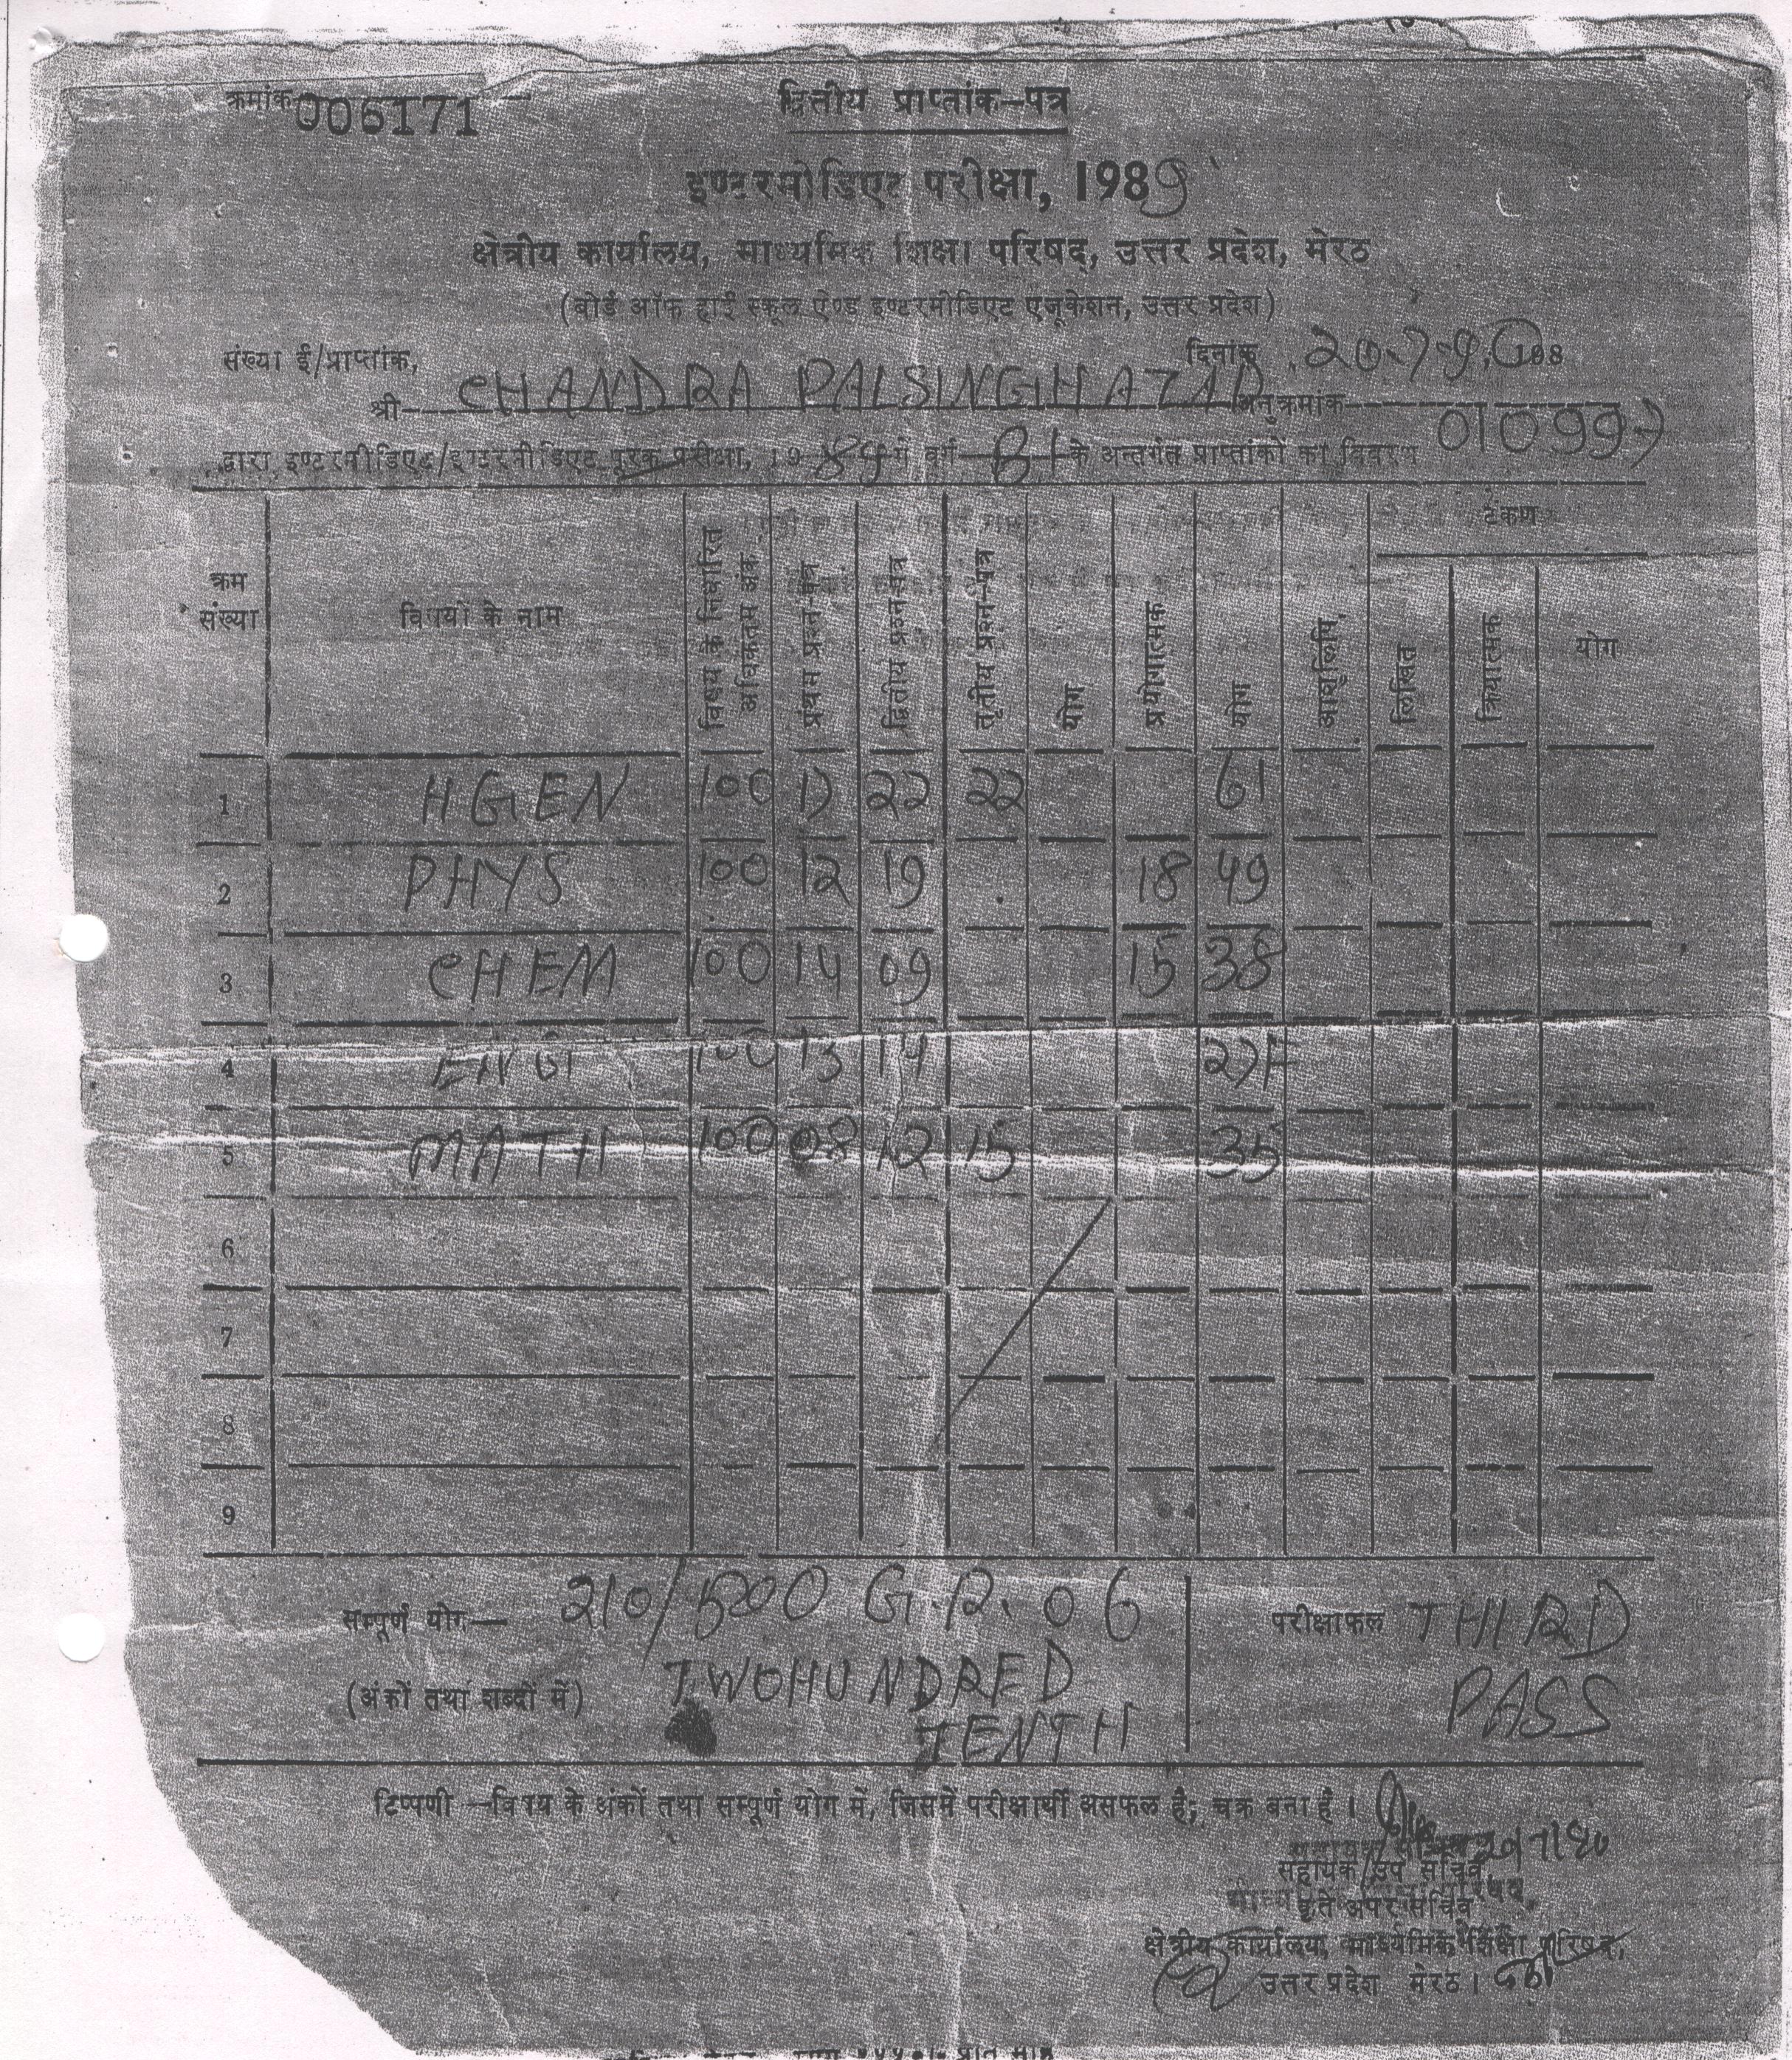 क्रमांक 006171
द्वितीय प्राप्तांक-पत्र
इण्टरमीडिएट परीक्षा, 1989
क्षेत्रीय कार्यालय, माध्यमिक शिक्षा परिषद्, उत्तर प्रदेश, मेरठ
(बोर्ड ऑफ हाई स्कूल ऐण्ड इण्टरमीडिएट एजूकेशन, उत्तर प्रदेश)
संख्या ई/प्राप्तांक, दिनांक 20-7-90 198
श्री— CHANDRA PALSINGH AZAD अनुक्रमांक— 010997
द्वारा इण्टरमीडिएट/इण्टरमीडिएट पूरक परीक्षा, 19 89 में वर्ग B1 के अन्तर्गत प्राप्तांकों का विवरण
क्रम संख्या विषयों के नाम विषय के निर्धारित अधिकतम अंक प्रथम प्रश्न-पत्र द्वितीय प्रश्न-पत्र तृतीय प्रश्न-पत्र योग प्रयोगात्मक योग आशुलिपि, टंकण लिखित क्रियात्मक योग
1 HGEN 100 17 22 22 61
2 PHYS 100 12 19 18 49
3 CHEM 100 14 09 15 38
4 ENG 100 13 14 27F
5 MATH 100 08 12 15 35
6
7
8
9
सम्पूर्ण योग— 210/500 G.R. 06 परीक्षाफल THIRD
(अंकों तथा शब्दों में) TWOHUNDRED PASS
TENTH
टिप्पणी—विषय के अंकों तथा सम्पूर्ण योग में, जिसमें परीक्षार्थी असफल है; चक्र बना है।
20/7/90
सहायक/उप सचिव,
कृते अपर सचिव
क्षेत्रीय कार्यालय, माध्यमिक शिक्षा परिषद,
उत्तर प्रदेश मेरठ।